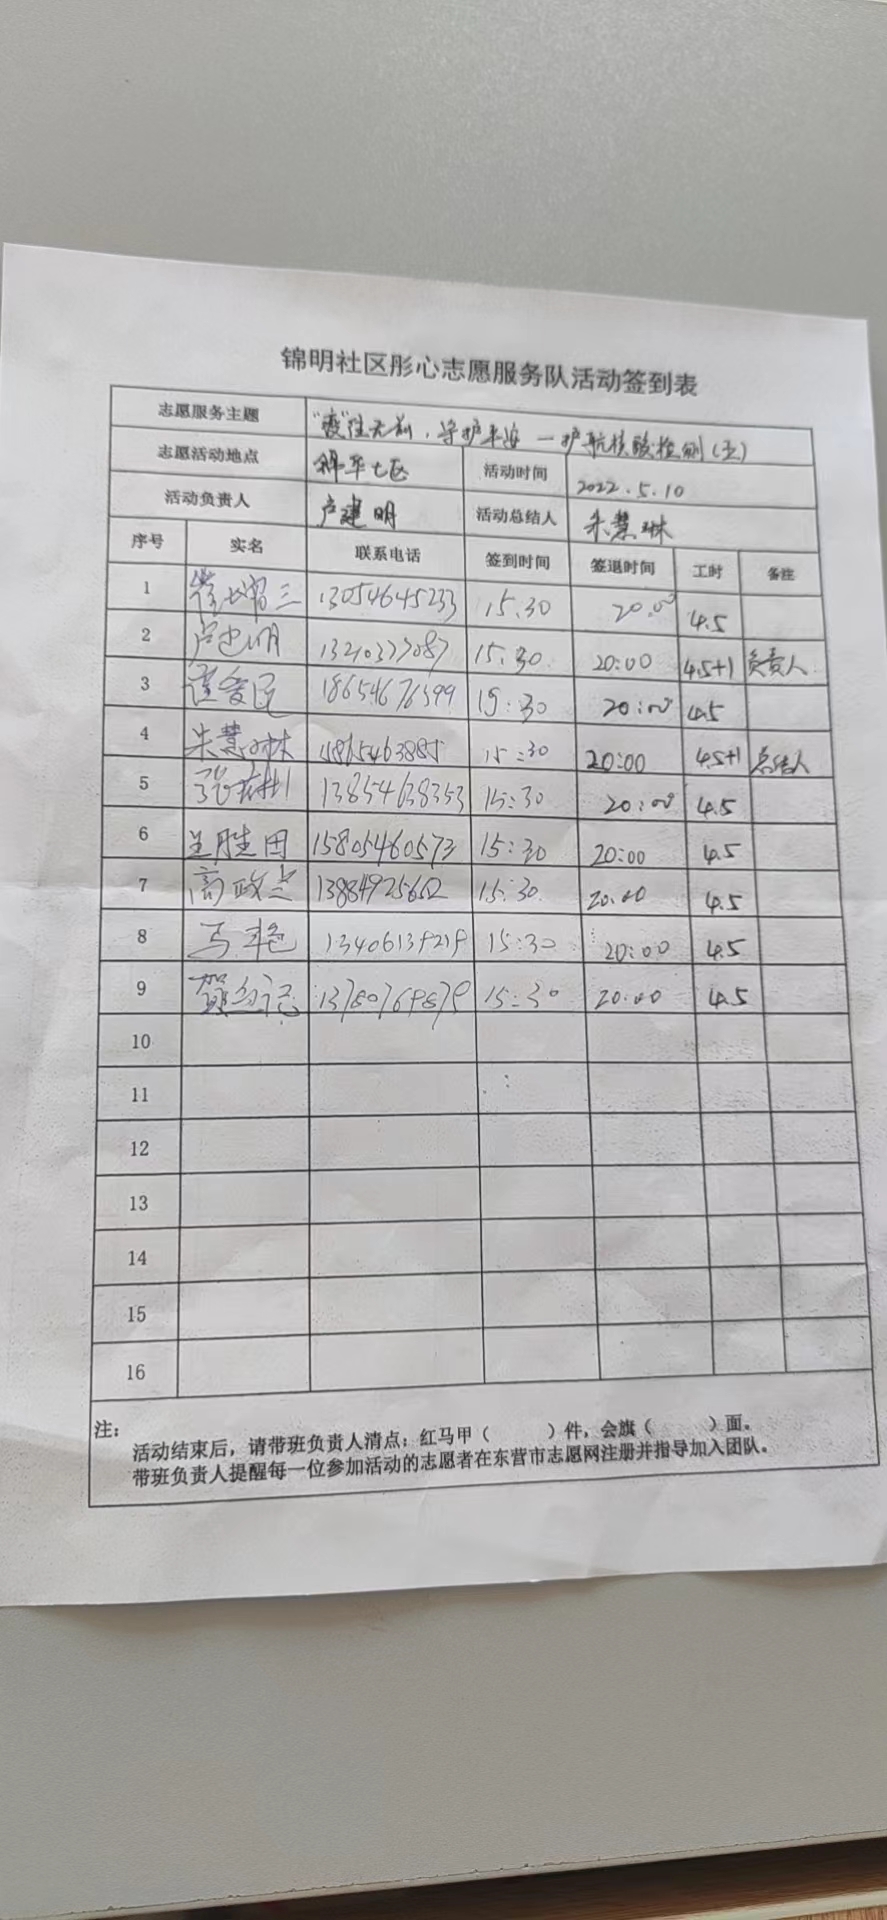 锦明社区彤心志愿服务队活动签到表
志愿服务主题 "疫"往无前，守护平安—护航核酸检测(五)
志愿活动地点 锦华七区 活动时间 2022.5.10
活动负责人 卢建明 活动总结人 朱慧琳
序号 实名 联系电话 签到时间 签退时间 工时 备注
1 13054645233 15:30 20:00 4.5
2 卢建明 13210377087 15:30 20:00 4.5+1 负责人
3 18654676599 15:30 20:00 4.5
4 朱慧琳 15:30 20:00 4.5+1 总结人
5 13854638353 15:30 20:00 4.5
6 王胜田 15805460573 15:30 20:00 4.5
7 15:30 20:00 4.5
8 马艳 15:30 20:00 4.5
9 15:30 20:00 4.5
10
11
12
13
14
15
16
注：
活动结束后，请带班负责人清点：红马甲（ ）件，会旗（ ）面。
带班负责人提醒每一位参加活动的志愿者在东营市志愿网注册并指导加入团队。